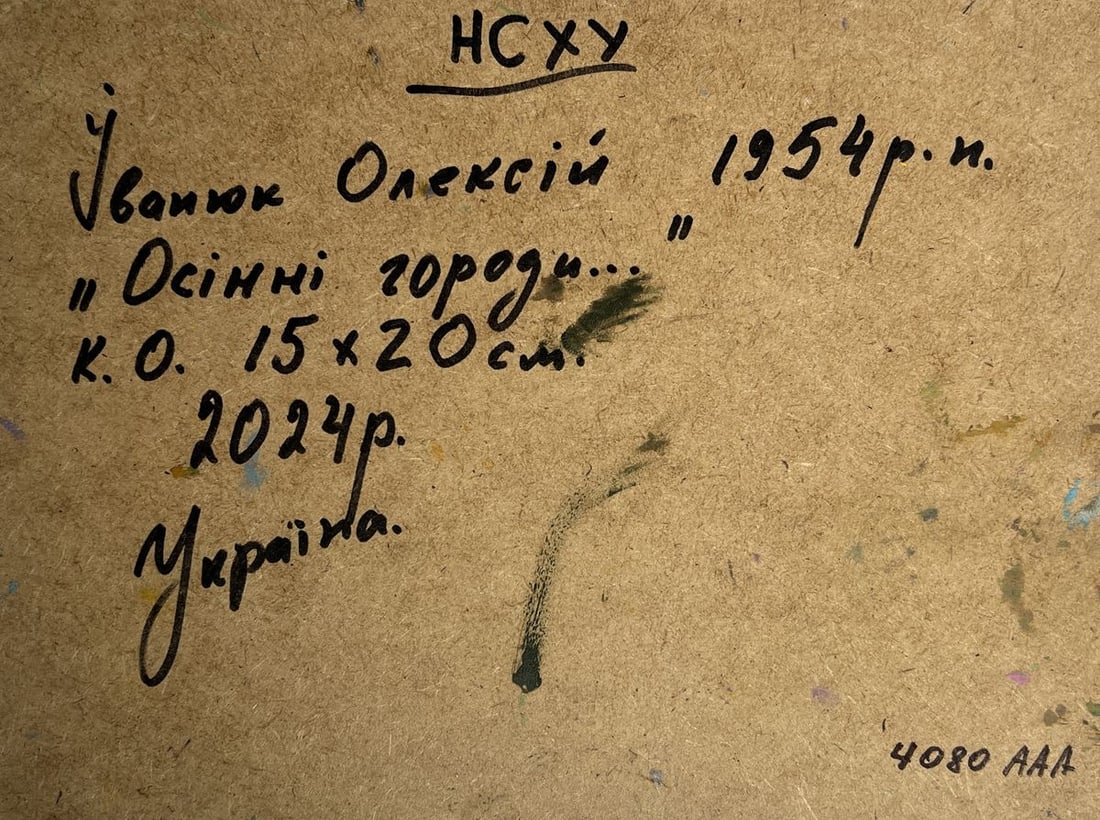 НСХУ
Іванюк Олексій 1954 р. н.
„Осінні городи..."
К. О. 15 х 20 см.
2024 р.
Україна.
4080 ААА